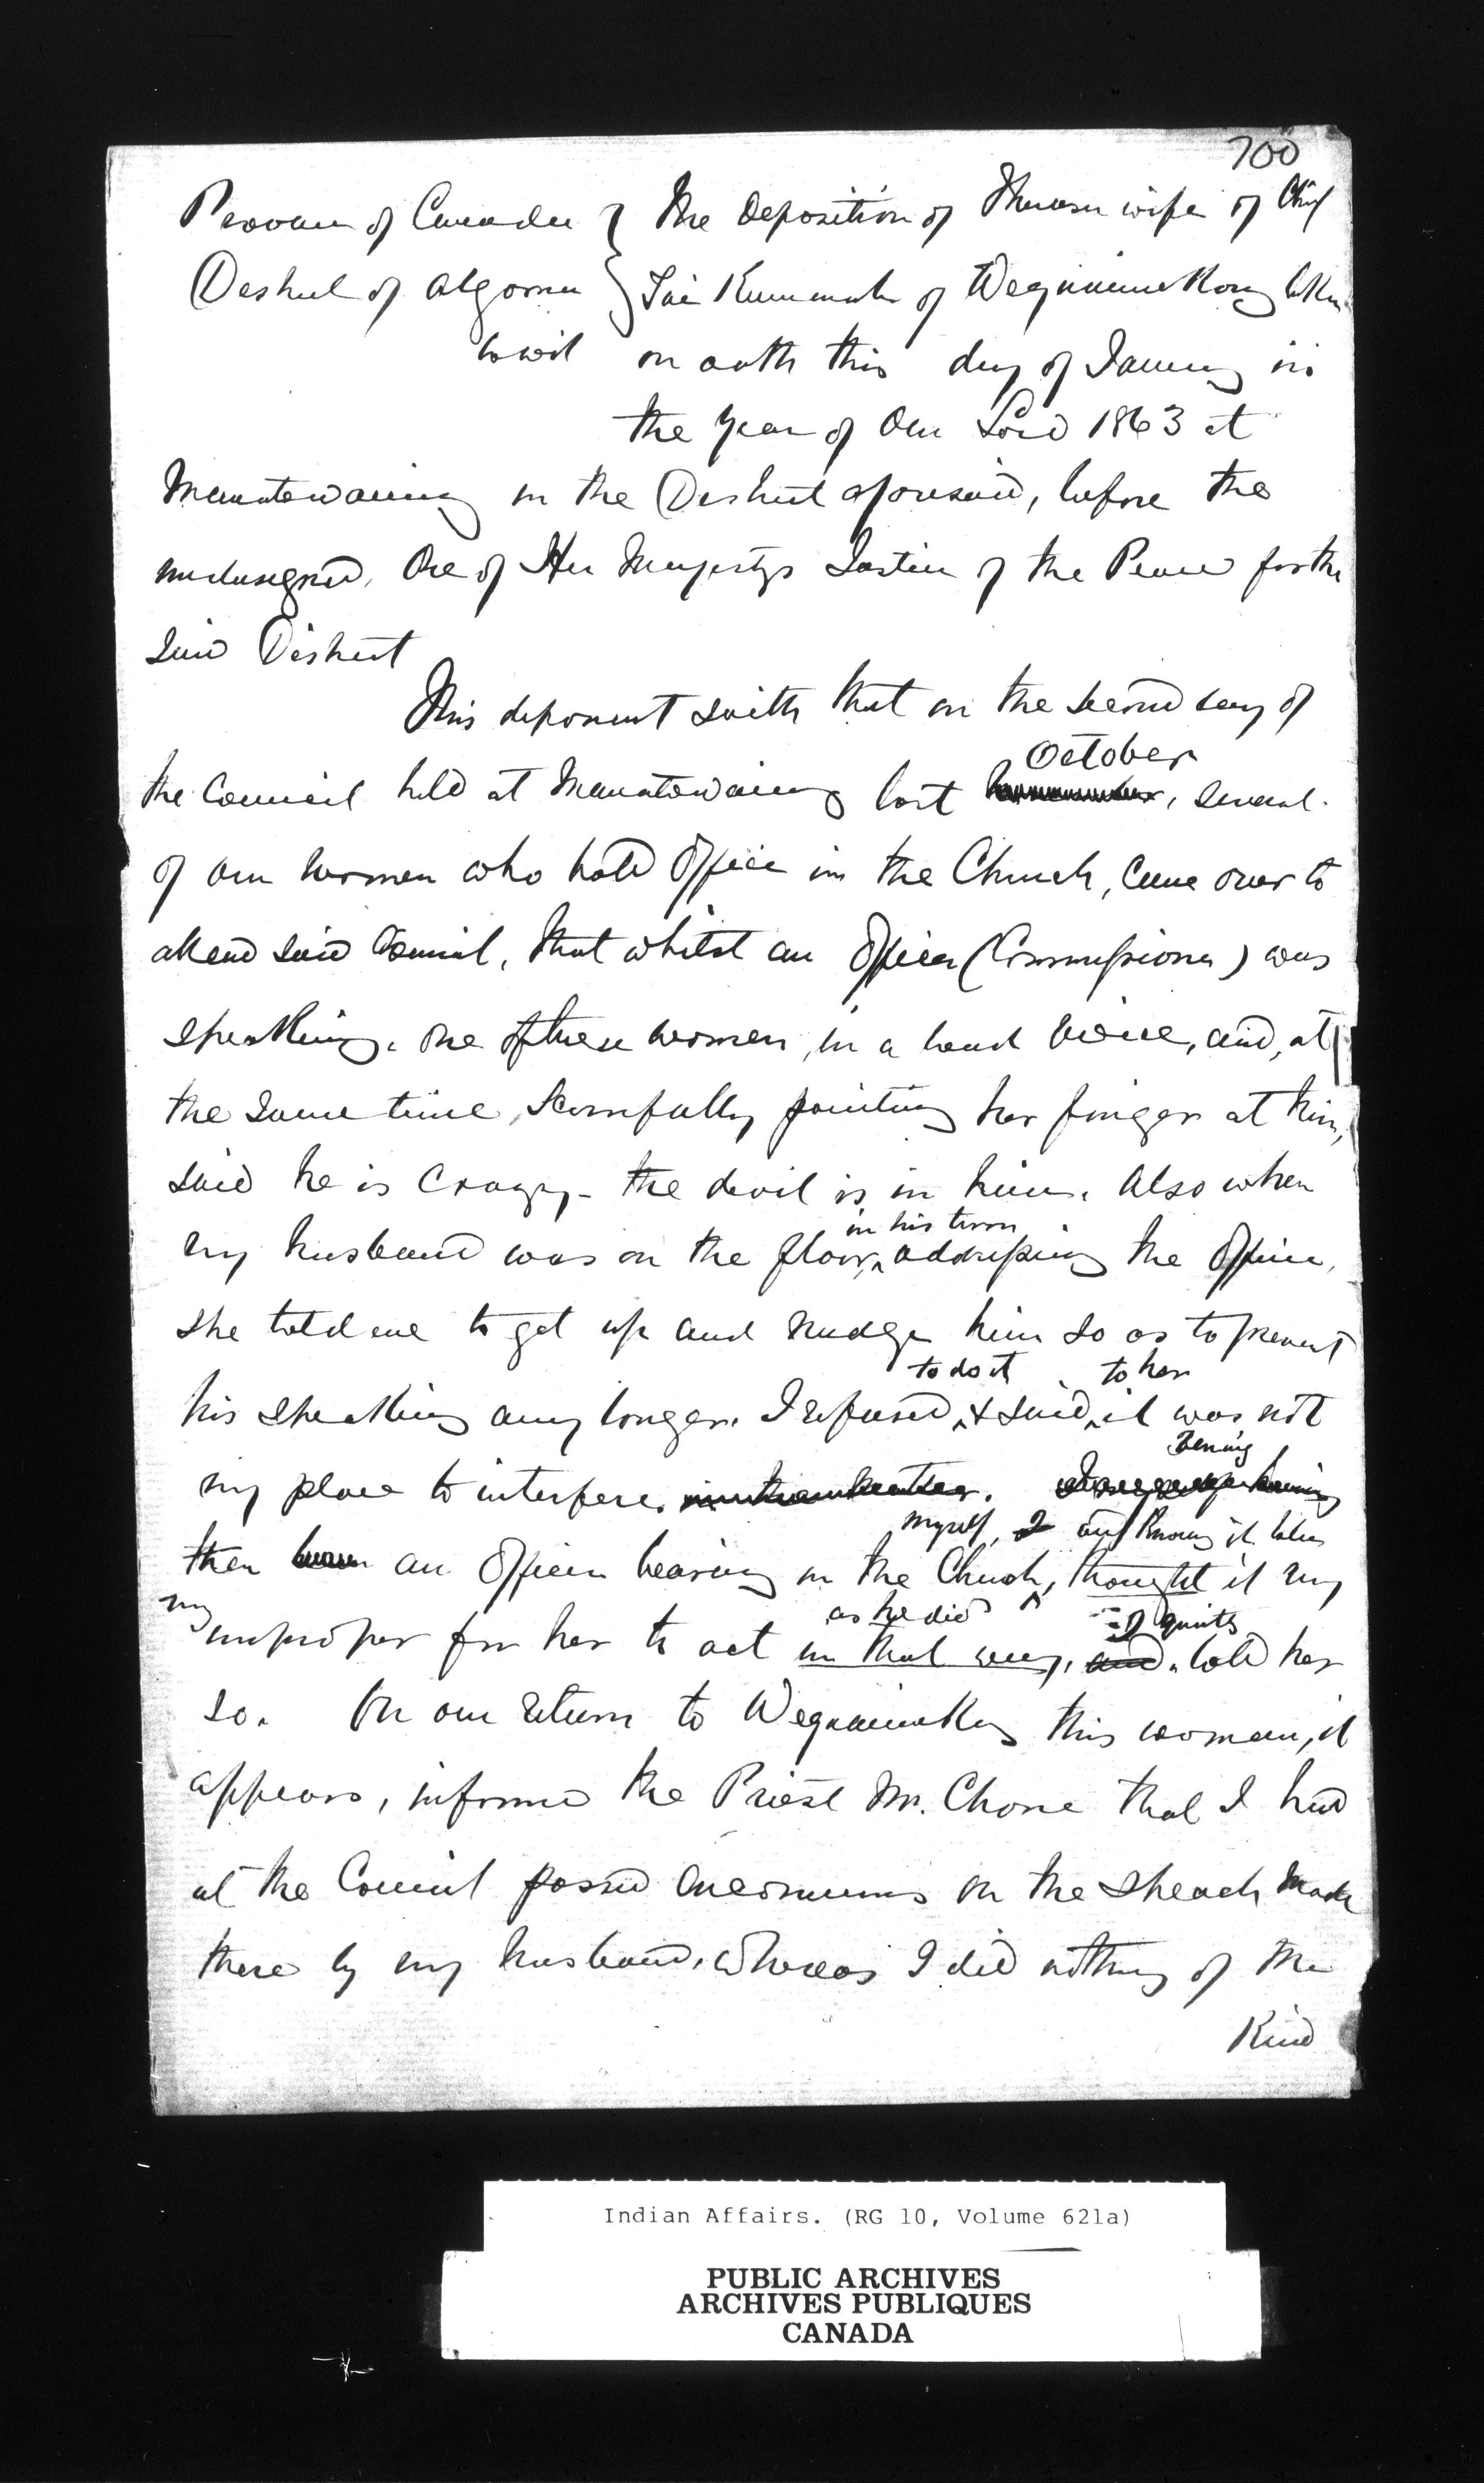 700
Province of Canada } The Deposition of Therese wife of Chief
District of Algoma } Tai Kummah of Wequaimekong taken
to wit on oath this day of January in
the Year of Our Lord 1863 at
Manatowaning in the District aforesaid, before the
undersigned, One of Her Majestys Justices of the Peace for the
said District
This deponent saith that on the second day of
October
the Council held at Manatowaning last , several
of our women who hold office in the Church, came over to
attend said Council, that whilst an Officer (Commissioner) was
speaking, one of these women, in a loud voice, and, at
the same time, scornfully pointing her finger at him,
said he is Crazy - the devil is in him. Also when
in his turn
my husband was on the floor, addressing the Officer,
she told me to get up and nudge him so as to prevent
to do it to her
his speaking any longer. I refused, & said, it was not
being
my place to interfere.
myself, I and
then an Officer bearing in the Church, thought it very
as he did I quietly
improper for her to act in that way, and told her
so. On our return to Wequaimekong this woman, it
appears, informed the Priest Mr. Chone that I had
at the Council passed encomiums on the speech made
there by my husband, whereas I did nothing of the
Kind
Indian Affairs. (RG 10, Volume 621a)
PUBLIC ARCHIVES
ARCHIVES PUBLIQUES
CANADA